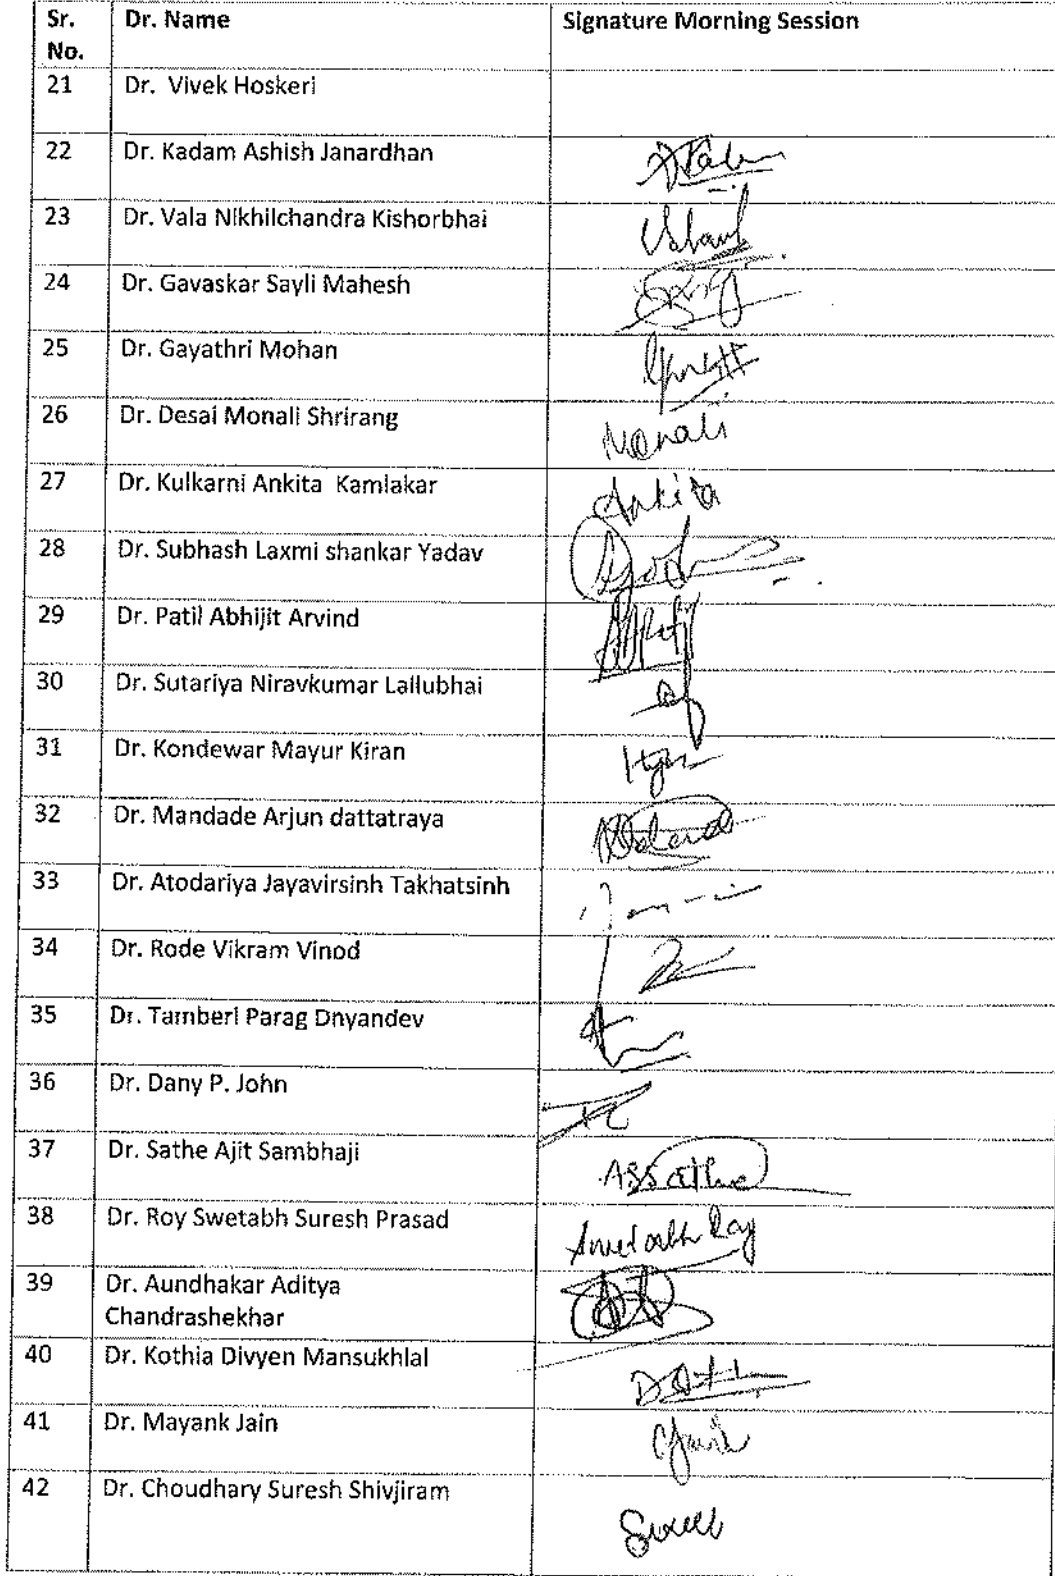 Sr. No. Dr. Name Signature Morning Session
21 Dr. Vivek Hoskeri
22 Dr. Kadam Ashish Janardhan
23 Dr. Vala Nikhilchandra Kishorbhai
24 Dr. Gavaskar Sayli Mahesh
25 Dr. Gayathri Mohan
26 Dr. Desai Monali Shrirang Monali
27 Dr. Kulkarni Ankita Kamlakar Ankita
28 Dr. Subhash Laxmi shankar Yadav
29 Dr. Patil Abhijit Arvind
30 Dr. Sutariya Niravkumar Lallubhai
31 Dr. Kondewar Mayur Kiran
32 Dr. Mandade Arjun dattatraya
33 Dr. Atodariya Jayavirsinh Takhatsinh
34 Dr. Rode Vikram Vinod
35 Dr. Tamberi Parag Dnyandev
36 Dr. Dany P. John
37 Dr. Sathe Ajit Sambhaji ASSathe
38 Dr. Roy Swetabh Suresh Prasad Swetabh Roy
39 Dr. Aundhakar Aditya
Chandrashekhar
40 Dr. Kothia Divyen Mansukhlal
41 Dr. Mayank Jain
42 Dr. Choudhary Suresh Shivjiram